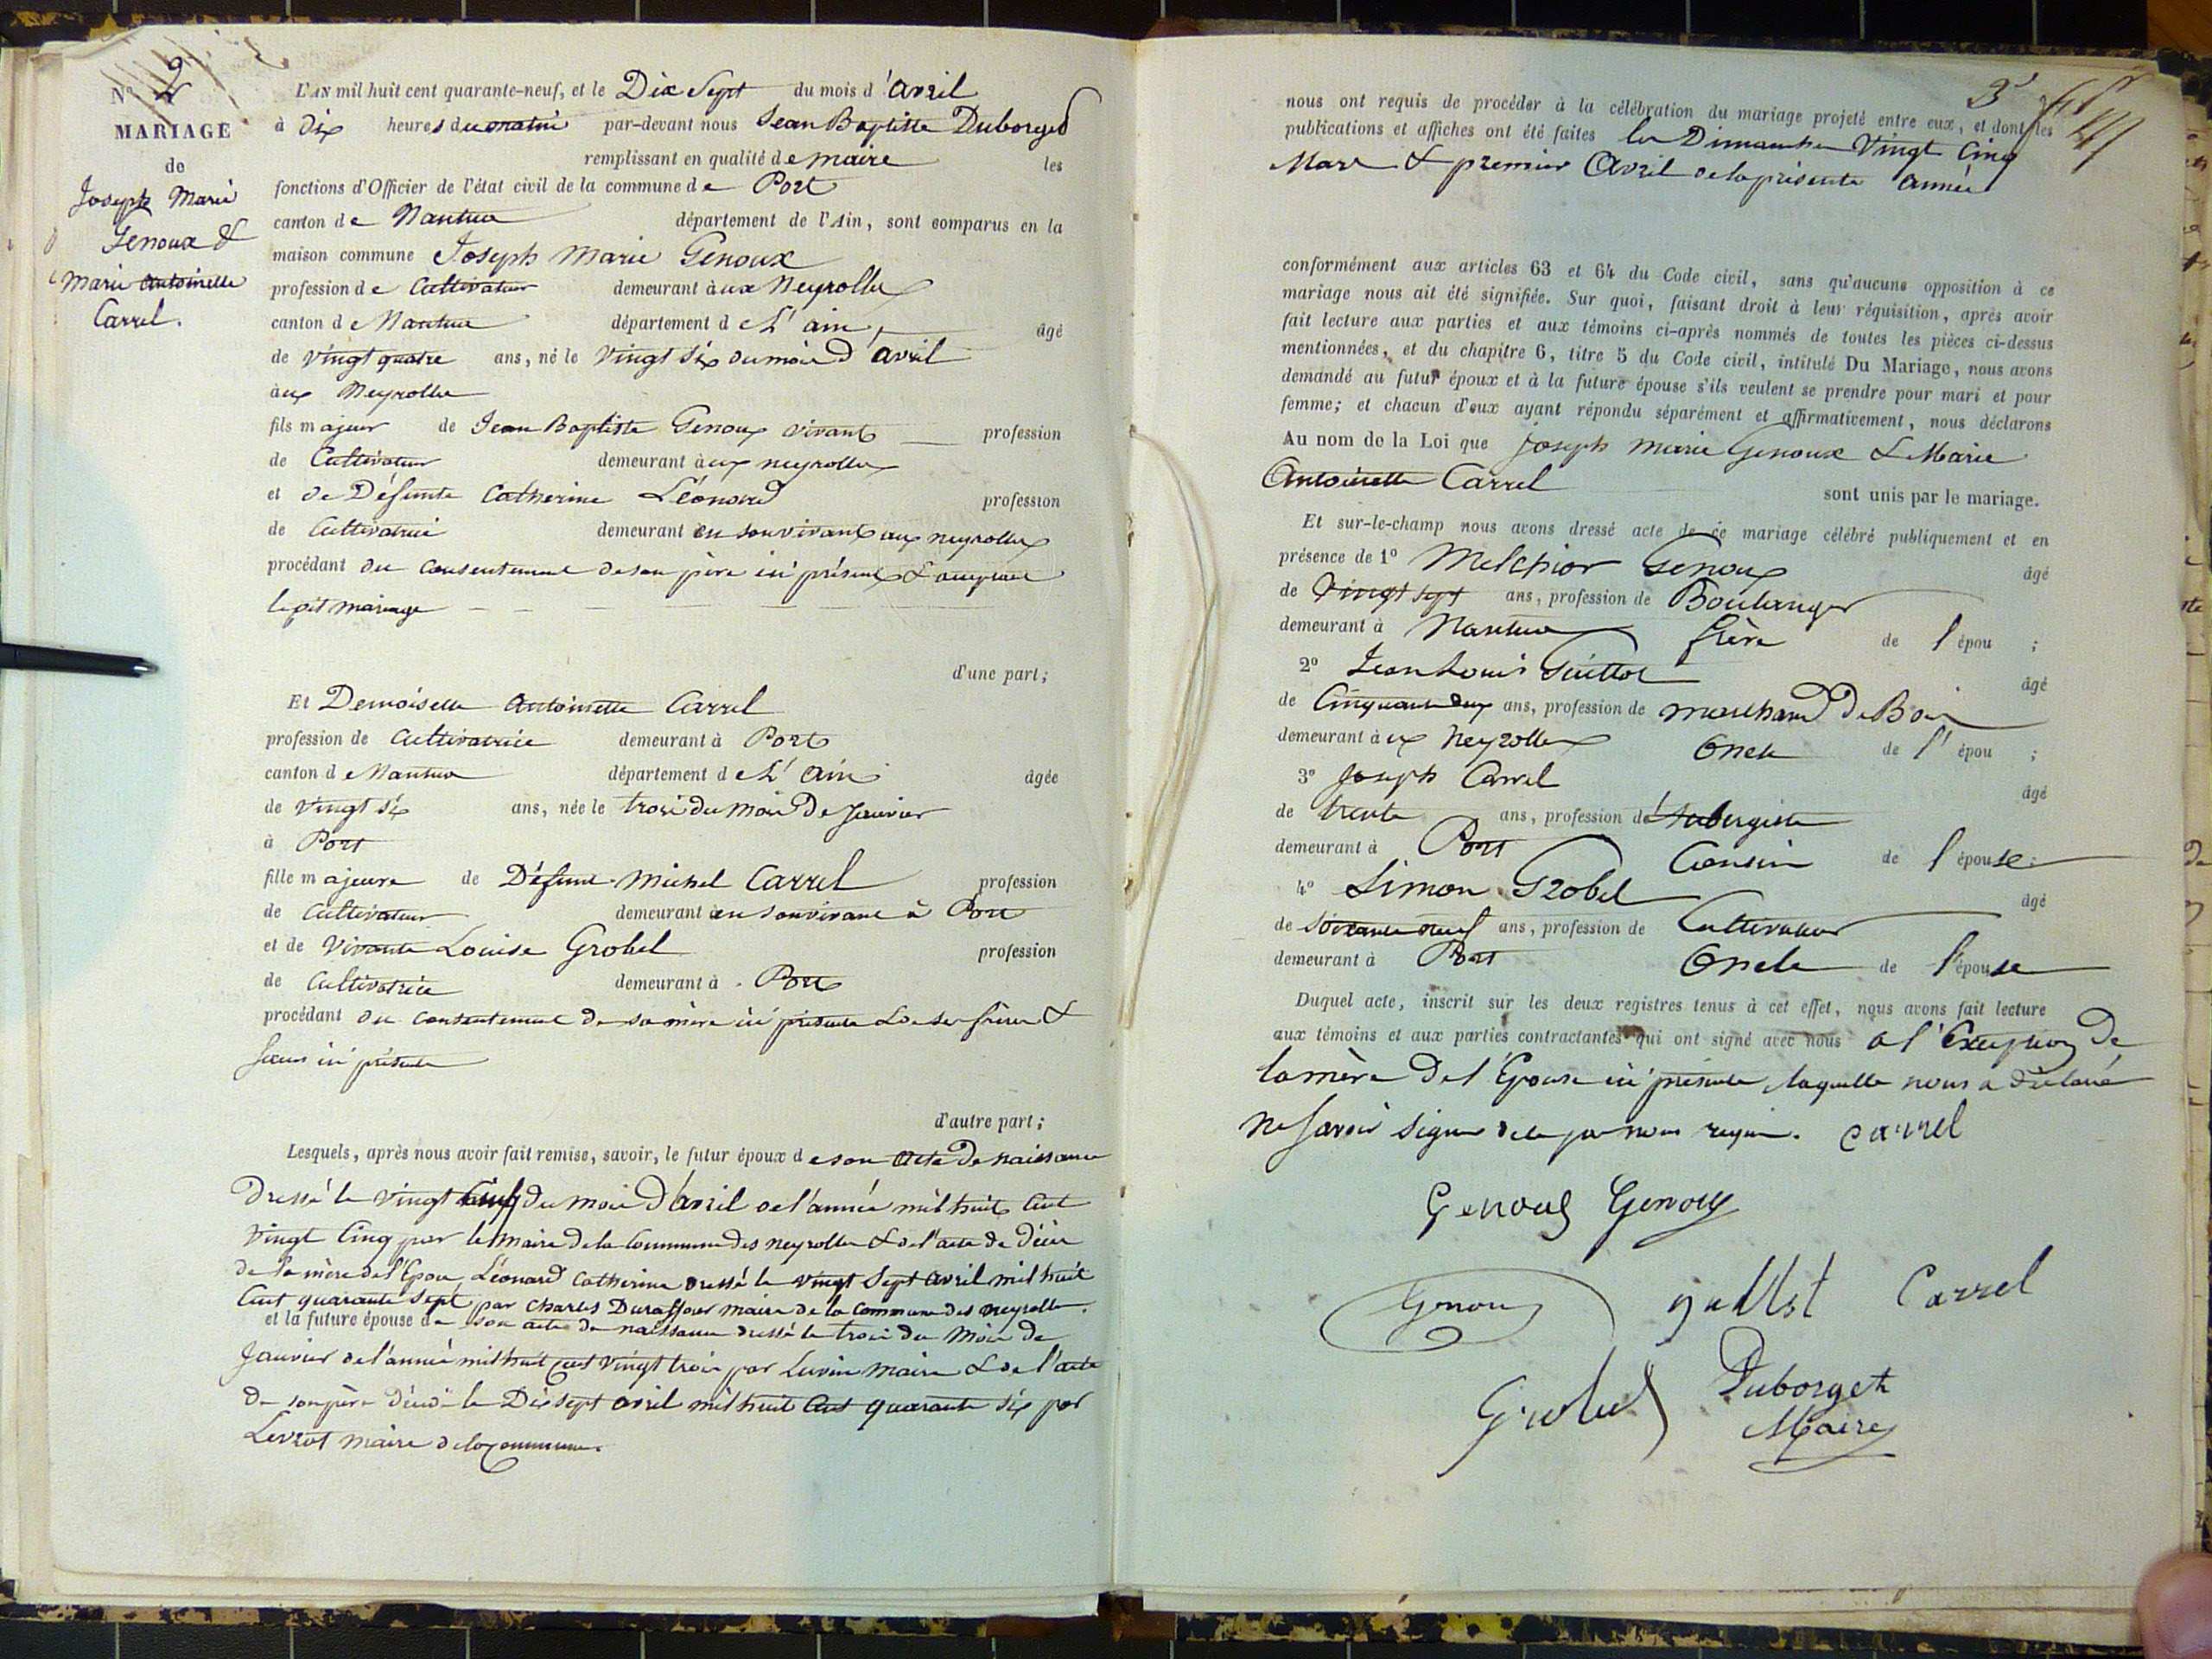 N° 2
MARIAGE
de
Joseph Marie
Genoux &
Marie Antoinette
Carrel.
L'AN mil huit cent quarante-neuf, et le Dix Sept du mois d'avril
à dix heures du matin par-devant nous Jean Baptiste Duborget
remplissant en qualité de maire les
fonctions d'Officier de l'état civil de la commune de Port
canton de Nantua département de l'Ain, sont comparus en la
maison commune Joseph Marie Genoux
profession de Cultivateur demeurant à ux Neyrolles
canton de Nantua département de L'ain, âgé
de vingt quatre ans, né le vingt six du mois d'avril
à ux Neyrolles
fils majeur de Jean Baptiste Genoux vivant profession
de Cultivateur demeurant à ux neyrolles
et de Défunte Catherine Léonard profession
de Cultivatrice demeurant en son vivant aux neyrolles
procédant du consentement de son père ici présent &
le dit mariage
d'une part;
Et Demoiselle Antoinette Carrel
profession de Cultivatrice demeurant à Port
canton de Nantua département de L'ain âgée
de vingt six ans, née le trois du mois de Janvier
à Port
fille majeure de Défunt Michel Carrel profession
de Cultivateur demeurant en son vivant à Port
et de Vivante Louise Grobel profession
de Cultivatrice demeurant à Port
procédant du consentement de sa mère ici présente & de ses frères &
soeurs ici présents
d'autre part;
Lesquels, après nous avoir fait remise, savoir, le futur époux de son acte de naissance
dressé le vingt du mois d'avril de l'année mil huit cent
vingt cinq par le maire de la Commune des neyrolles & de l'acte de décès
de la mère de l'Epoux, Léonard Catherine dressé le vingt Sept avril mil huit
cent quarante Sept par Charles Duraffour maire de la Commune des neyrolles.
et la future épouse de son acte de naissance dressé le trois du Mois de
Janvier de l'année mil huit cent vingt trois par maire & de l'acte
de son père décédé le Dix sept avril mil huit cent quarante six par
Levrot maire de la Commune.
nous ont requis de procéder à la célébration du mariage projeté entre eux, et dont les
publications et affiches ont été faites les Dimanches Vingt Cinq
Mars & premier Avril de la présente année
conformément aux articles 63 et 64 du Code civil, sans qu'aucune opposition à ce
mariage nous ait été signifiée. Sur quoi, faisant droit à leur réquisition, après avoir
fait lecture aux parties et aux témoins ci-après nommés de toutes les pièces ci-dessus
mentionnées, et du chapitre 6, titre 5 du Code civil, intitulé Du Mariage, nous avons
demandé au futur époux et à la future épouse s'ils veulent se prendre pour mari et pour
femme; et chacun d'eux ayant répondu séparément et affirmativement, nous déclarons
Au nom de la Loi que Joseph Marie Genoux & Marie
Antoinette Carrel sont unis par le mariage.
Et sur-le-champ nous avons dressé acte de ce mariage célébré publiquement et en
présence de 1° Melchior Genoux âgé
de Vingt sept ans, profession de Boulanger
demeurant à Nantua frère de l'épou ;
2° Jean Louis âgé
de Cinquante deux ans, profession de marchand de Bois
demeurant à ux Neyrolles Oncle de l'épou ;
3° Joseph Carrel âgé
de trente ans, profession d'Aubergiste
demeurant à Port Cousin de l'épouse;
4° Simon Grobel âgé
de soixante neuf ans, profession de Cultivateur
demeurant à Port Oncle de l'épouse
Duquel acte, inscrit sur les deux registres tenus à cet effet, nous avons fait lecture
aux témoins et aux parties contractantes qui ont signé avec nous à l'Exception de
la mère de l'Epouse ici présente laquelle nous a déclaré
ne savoir signer de ce par nous requise. Carrel
Genoux Genoux
Genoux Carrel
Grobel Duborget
Maire